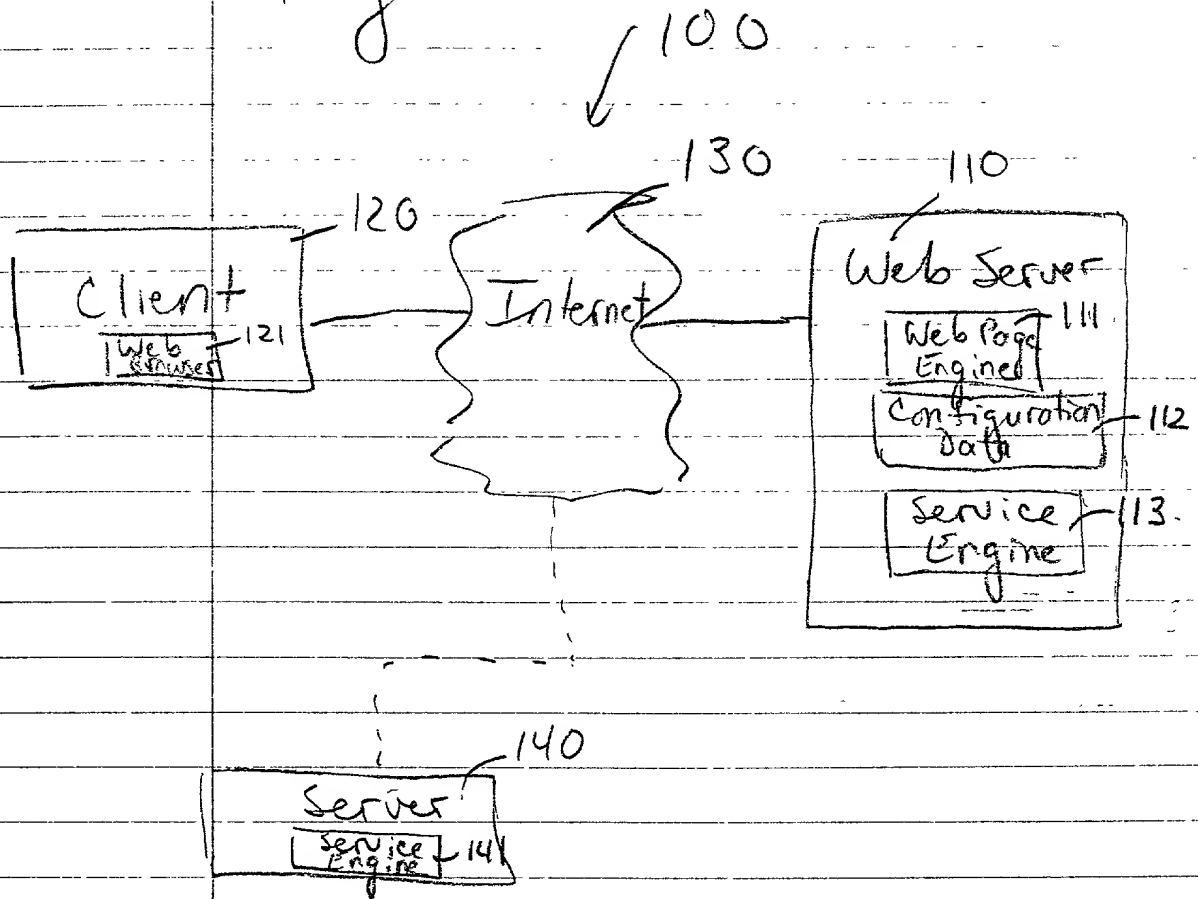 100
130
110
120
Client
121
Web
Browser
Internet
Web Server
111
Web Page
Engine
Configuration
Data
112
Service
Engine
113.
140
Server
Service
Engine
141